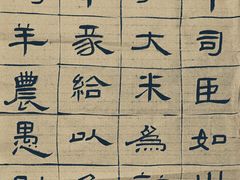 羊豕大司
農給米臣
愚以為如